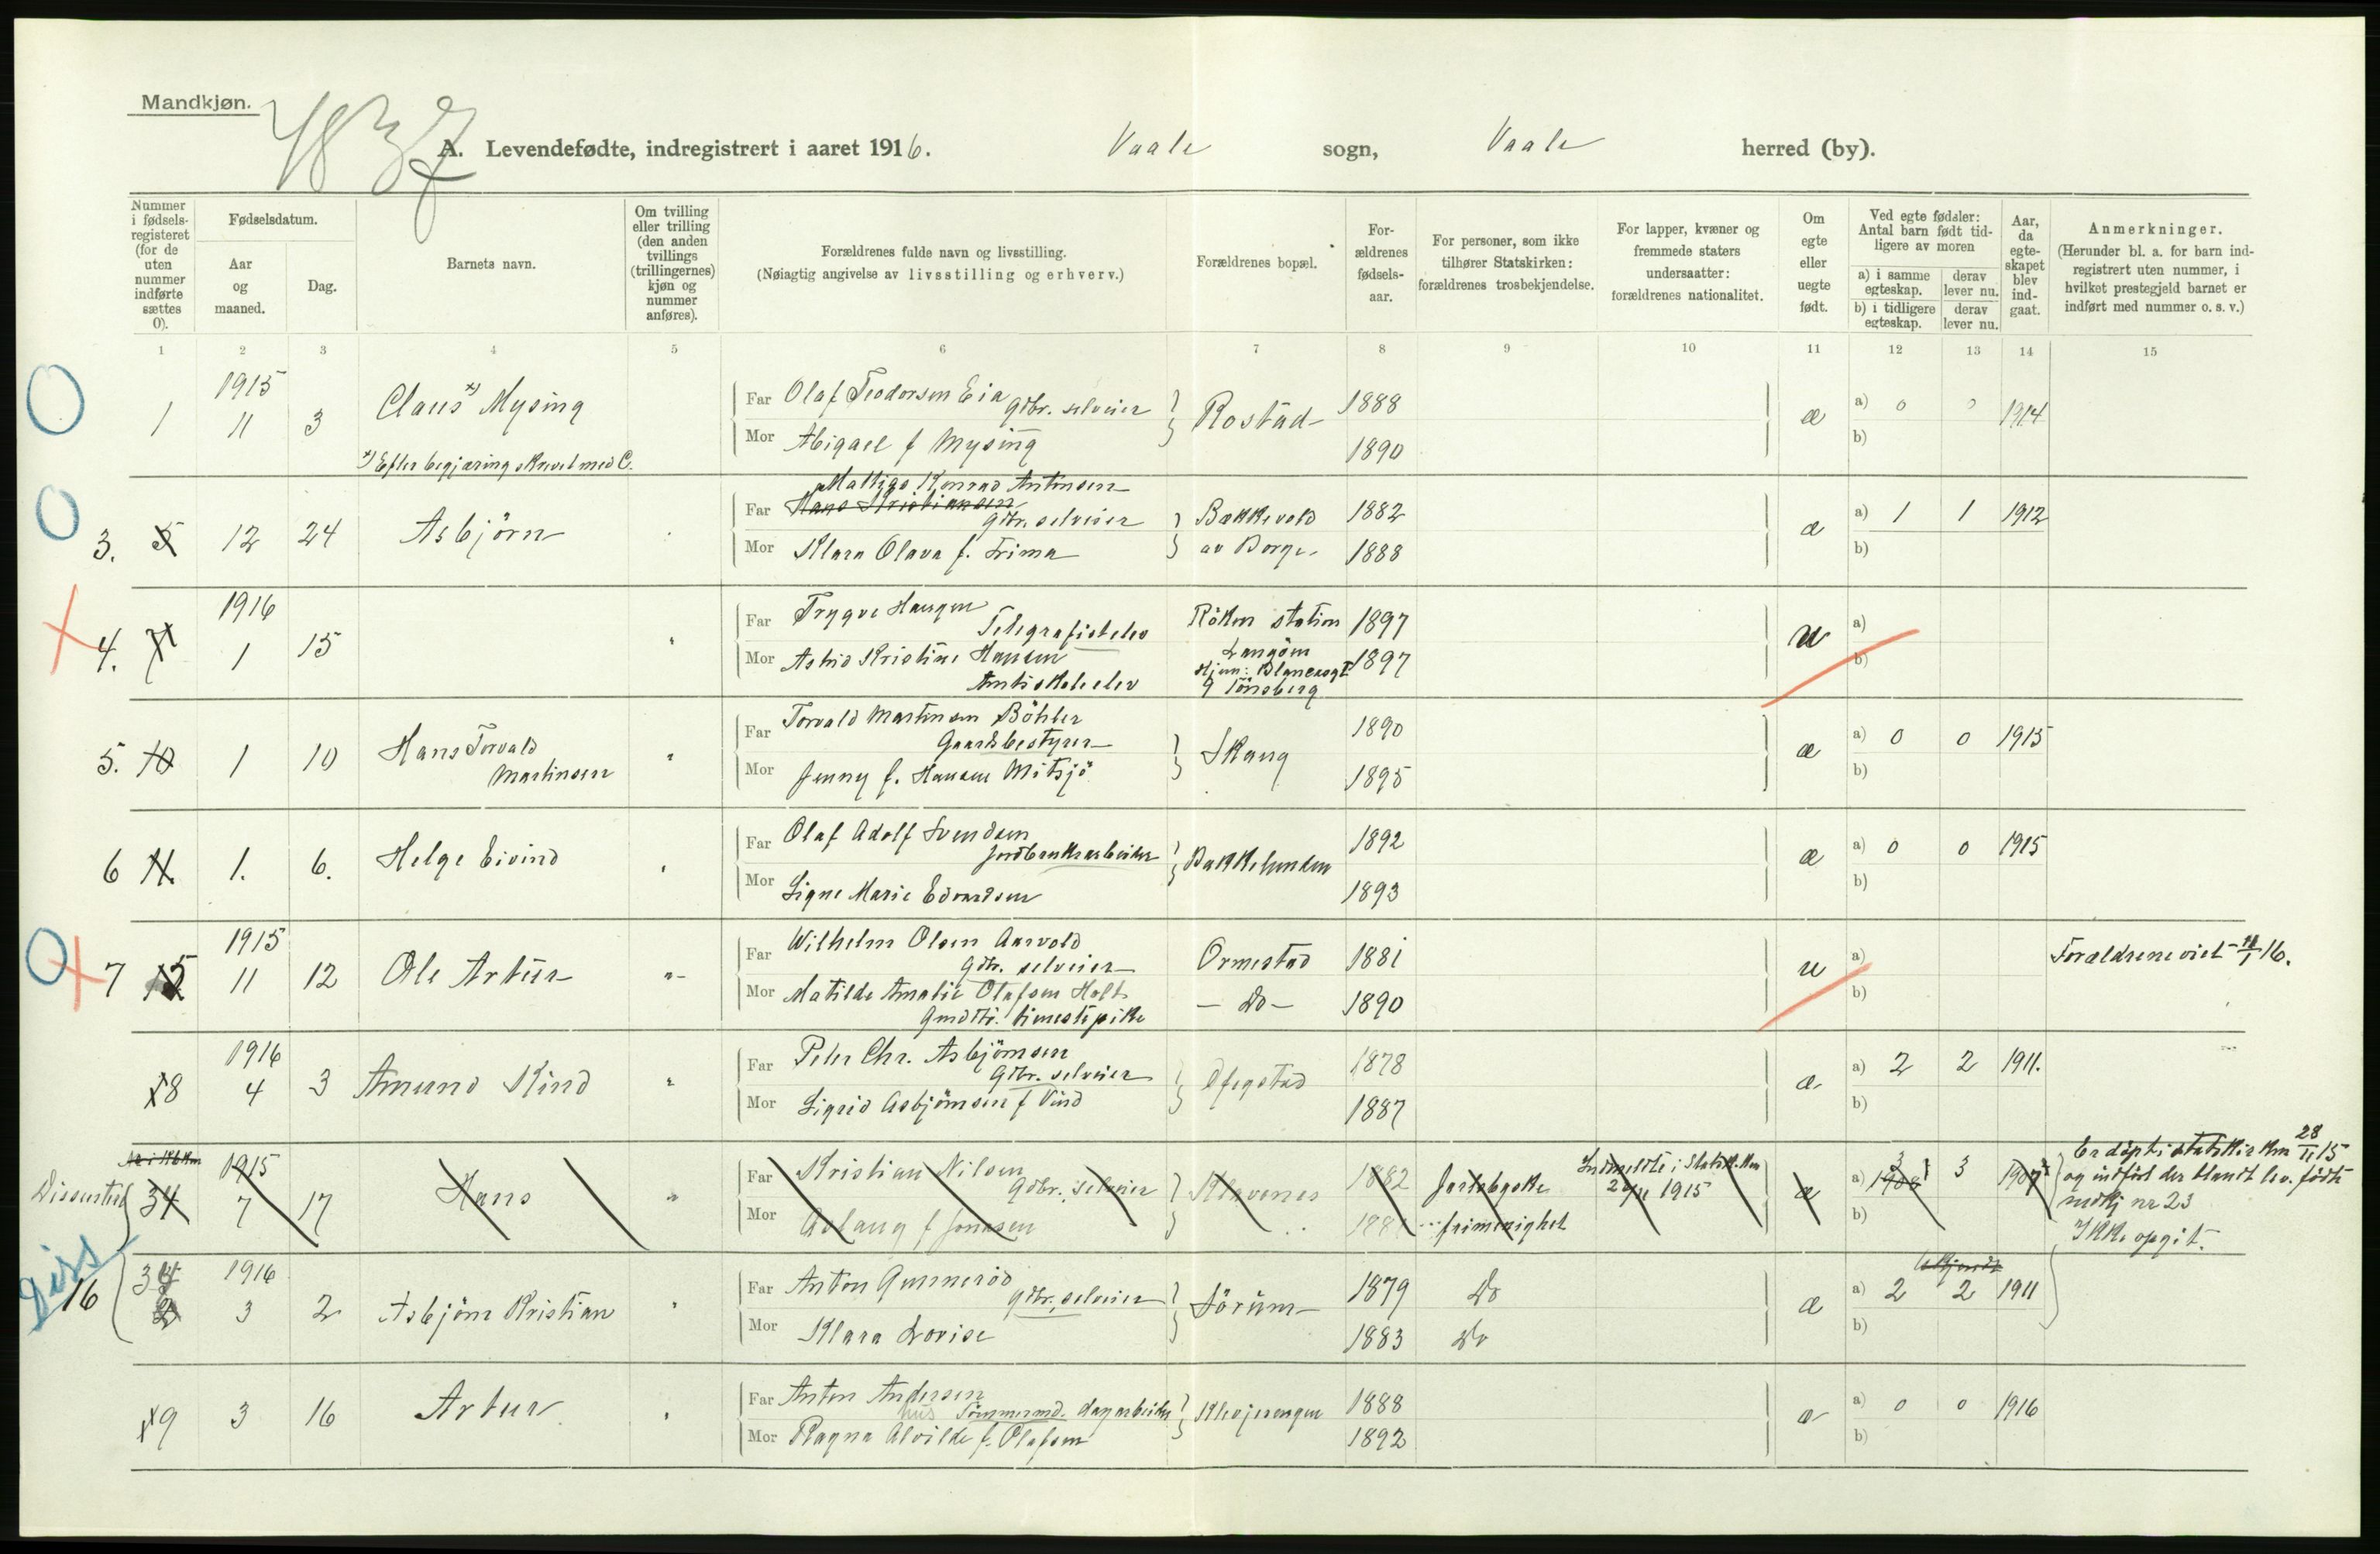 Mandkjøn.
4837
A. Levendefødte, indregistrert i aaret 1916. Vaale sogn, Vaale herred (by).
Nummer i fødsels-registeret (for de uten nummer indførte sættes 0).
Fødselsdatum.
Aar og maaned.
Dag.
Barnets navn.
Om tvilling eller trilling (den anden tvillings (trillingernes) kjøn og nummer anføres).
Forældrenes fulde navn og livsstilling.
(Nøiagtig angivelse av livsstilling og erhverv.)
Forældrenes bopæl.
For-ældrenes fødsels-aar.
For personer, som ikke tilhører Statskirken: forældrenes trosbekjendelse.
For lapper, kvæner og fremmede staters undersaatter: forældrenes nationalitet.
Om egte eller uegte født.
Ved egte fødsler: Antal barn født tid-ligere av moren
a) i samme egteskap. derav lever nu.
b) i tidligere egteskap. derav lever nu.
Aar, da egte-skapet blev ind-gaat.
Anmerkninger.
(Herunder bl. a. for barn ind-registrert uten nummer, i hvilket prestegjeld barnet er indført med nummer o. s. v.)
1 2 3 4 5 6 7 8 9 10 11 12 13 14 15
1915
1 11 3 Claus x) Mysing
Far Olaf Teodorsen Eia Gdbr. selveier Rostad 1888 æ a) 0 0 1914
Mor Abigael f Mysing 1890 b)
x) Efter begjæring skrevet med C.
Mathias Konrad Antonsen
3. 5 12 24 Asbjörn
Far Hans Kristiansen Gdbr. selveier Bækkevold 1882 æ a) 1 1 1912
Mor Klara Olava f. Frima av Borge 1888 b)
1916
4. 1 15
Far Trygve Haugen Telegrafistelev Röken station 1897 u a)
Mor Astrid Kristine Hansen Amtskoleelev Langöen 1897 b)
Tönsberg
5. 10 1 10 Hans Torvald Martinsen
Far Torvald Martinsen Böhler Gaardsbestyrer Skaug 1890 æ a) 0 0 1915
Mor Jenny f. Hansen Mitsjö 1895 b)
6 11. 1. 6. Helge Eivind
Far Olaf Adolf Svendsen Jordbruksarbeider Bakkelunden 1892 æ a) 0 0 1915
Mor Signe Marie Edvardsen 1893 b)
1915
7 15 11 12 Ole Artur
Far Wilhelm Olsen Aarvold Gdbr. selveier Ormestad 1881 u a) Forældrene viet 11/1 16.
Mor Matilde Amalie Olafsen Holt Gmdtr. tjenestepike — Do — 1890 b)
1916
8 4 3 Amund Kind
Far Peter Chr. Asbjörnsen Gdbr. selveier Ofegstad 1878 æ a) 2 2 1911.
Mor Sigrid Asbjörnsen f Vind 1887 b)
1915
Dissenter 34 7 17 Hans
Far Kristian Nilsen Gdbr. selveier Klavenes 1882 Jarlsbergske Indmeldte i Statsk.ken 1915 æ a) 1908 3 3 1907 Er döpt i statskirken 28/11 15 og indført der blandt lev. födte mdkj nr 23
Mor Aslaug f Jonassen 188 frimenighet b) Ikke opgit.
diss
1916
16 3 2 Asbjörn Kristian
Far Anton Gunneröd Gdbr. selveier Sörum 1879 Do æ a) 2 2 1911
Mor Klara Lovise 1883 Do b)
9 3 16 Artur
Far Anton Andersen hus Tömmermd. dagarbeider Klevjerengen 1888 æ a) 0 0 1916
Mor Ragna Alvilde f. Olafsen 1892 b)